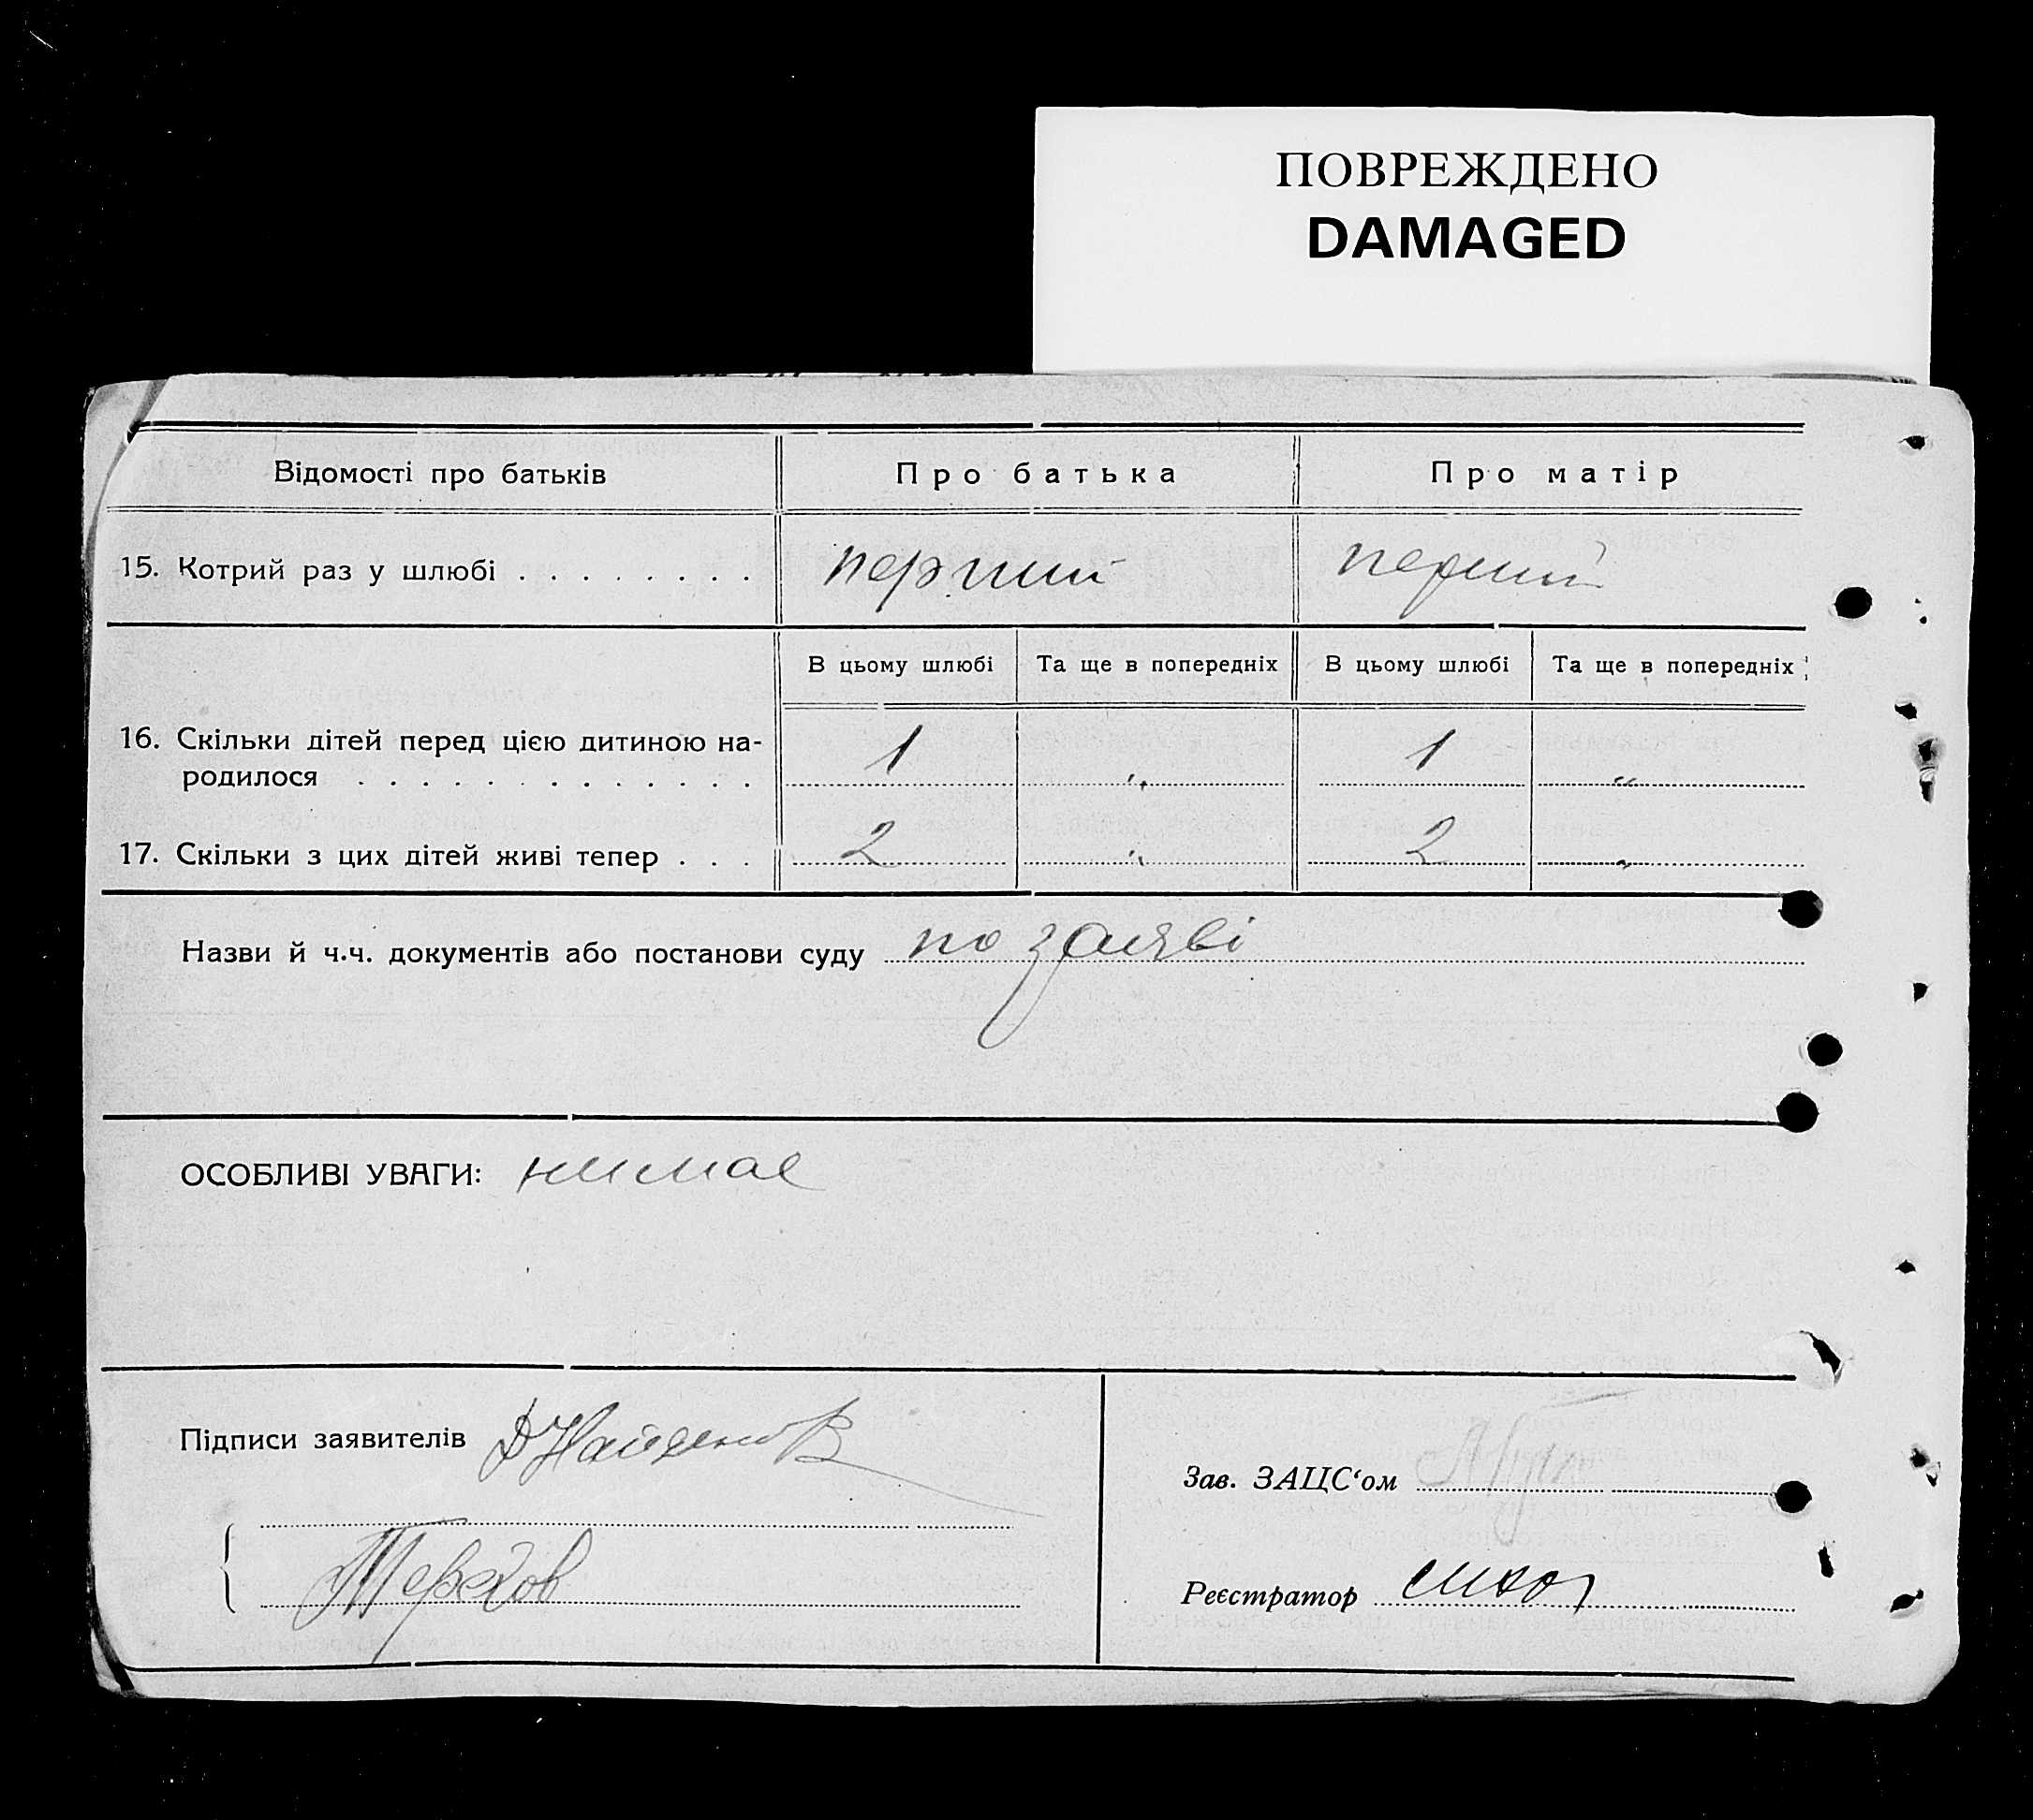 ПОВРЕЖДЕНО
DAMAGED
Відомості про батьків Про батька Про матір
15. Котрий раз у шлюбі . . . . . . . . перший перший
В цьому шлюбі Та ще в попередніх В цьому шлюбі Та ще в попередніх
16. Скільки дітей перед цією дитиною на-
родилося . . . . . . . . . . . . . 1 „ 1 „
17. Скільки з цих дітей живі тепер . . . 2 „ 2 „
Назви й ч.ч. документів або постанови суду по заяві
ОСОБЛИВІ УВАГИ: нимає
Підписи заявителів Д Найденов
Зав. ЗАЦС‘ом
Терехов
Реєстратор